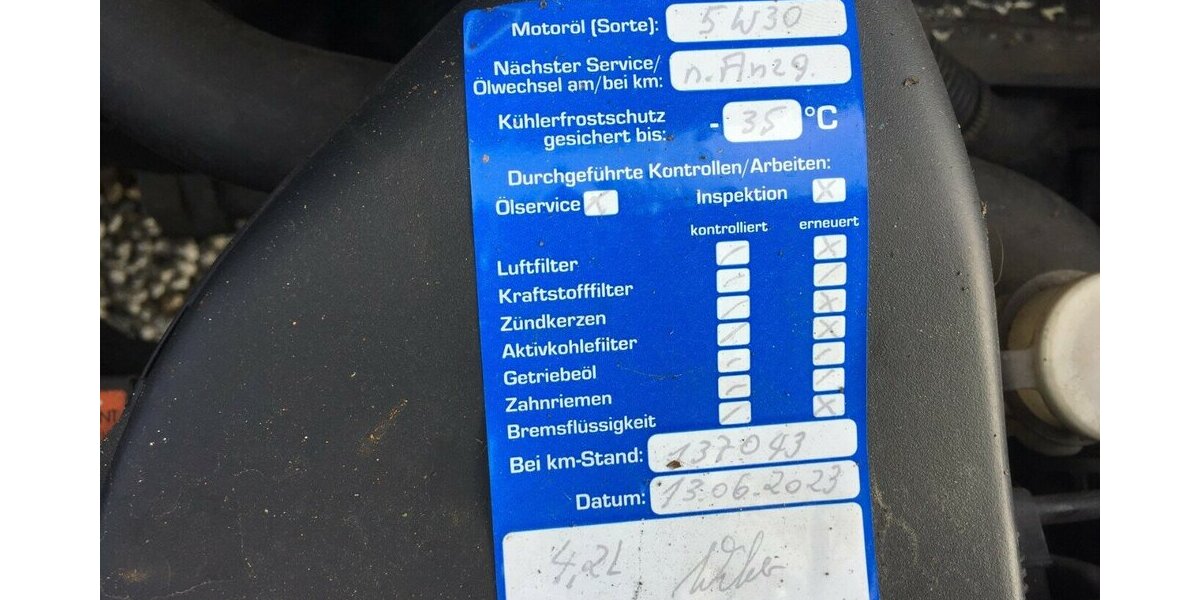 Motoröl (Sorte): 5W30
Nächster Service/
Ölwechsel am/bei km: n. Anzg.
Kühlerfrostschutz
gesichert bis: - 35 °C
Durchgeführte Kontrollen/Arbeiten:
Ölservice x Inspektion x
kontrolliert erneuert
Luftfilter - x
Kraftstofffilter - -
Zündkerzen - x
Aktivkohlefilter - x
Getriebeöl - -
Zahnriemen - -
Bremsflüssigkeit - x
Bei km-Stand: 137043
Datum: 13.06.2023
4,2L